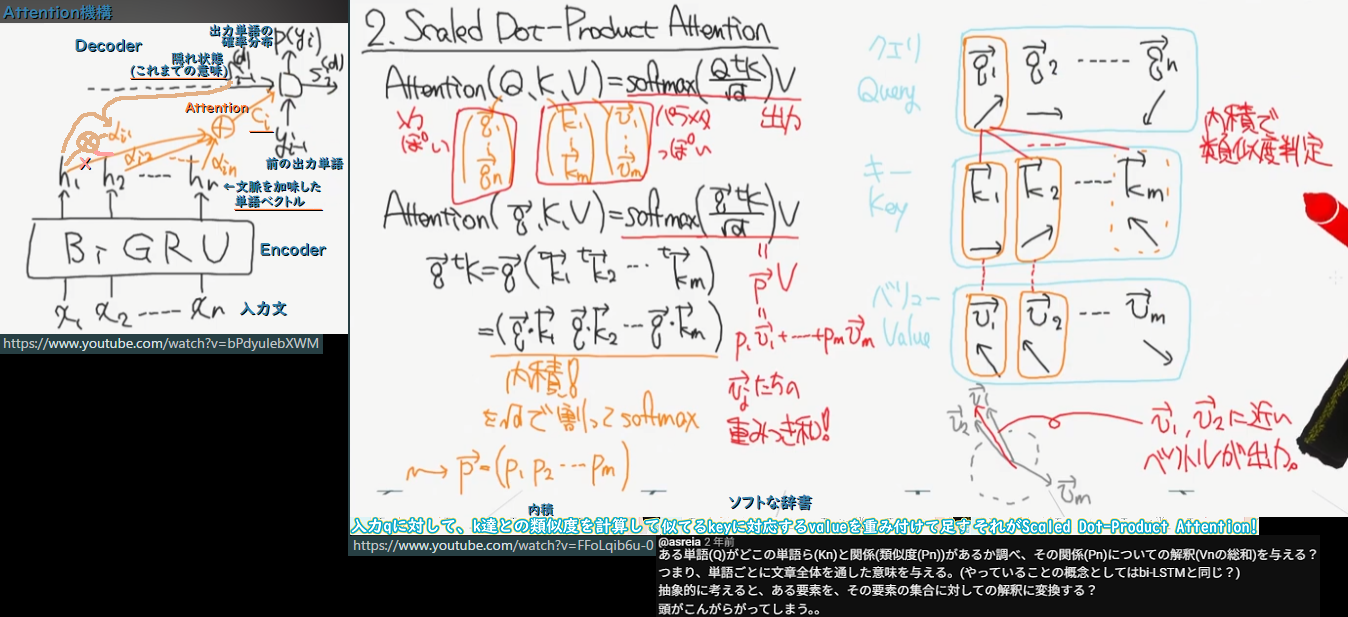 Attention機構
Decoder
出力単語の
確率分布
p(yi)
隠れ状態
(これまでの意味)
(d)
(d)
Attention
Ci
αi1
αi2
αin
yi-1
前の出力単語
h1 h2 ---- hn
←文脈を加味した
単語ベクトル
BiGRU
Encoder
x1 x2 ---- xn
入力文
https://www.youtube.com/watch?v=bPdyuIebXWM
2. Scaled Dot-Product Attention
Attention(Q, K, V) = softmax(Q ᵗK/√d)V
入力
っぽい
(q⃗1 ⋮ q⃗n)
(k⃗1 ⋮ k⃗m)
(v⃗1 ⋮ v⃗m)
パラメタ
っぽい
出力
Attention(q⃗, K, V) = softmax(q⃗ ᵗK/√d)V
q⃗ ᵗK = q⃗(ᵗk⃗1 ᵗk⃗2 ... ᵗk⃗m)
= (q⃗・k⃗1 q⃗・k⃗2 ... q⃗・k⃗m)
内積!
を√dで割ってsoftmax
p⃗ = (p1 p2 ... pm)
=
p⃗V
=
p1v⃗1+...+pmv⃗m
v⃗jたちの
重みつき和!
クエリ
Query
q⃗1 q⃗2 ----- q⃗n
内積で
類似度判定
キー
Key
k⃗1 k⃗2 ---- k⃗m
バリュー
Value
v⃗1 v⃗2 --- v⃗m
v⃗1
v⃗2
v⃗m
v⃗1, v⃗2に近い
ベクトルが出力。
内積
ソフトな辞書
入力qに対して、k達との類似度を計算して似てるkeyに対応するvalueを重み付けて足す それがScaled Dot-Product Attention!
https://www.youtube.com/watch?v=FFoLqib6u-0
@asreia 2 年前
ある単語(Q)がどこの単語ら(Kn)と関係(類似度(Pn))があるか調べ、その関係(Pn)についての解釈(Vnの総和)を与える？
つまり、単語ごとに文章全体を通した意味を与える。(やっていることの概念としてはbi-LSTMと同じ？)
抽象的に考えると、ある要素を、その要素の集合に対しての解釈に変換する？
頭がこんがらがってしまう。。